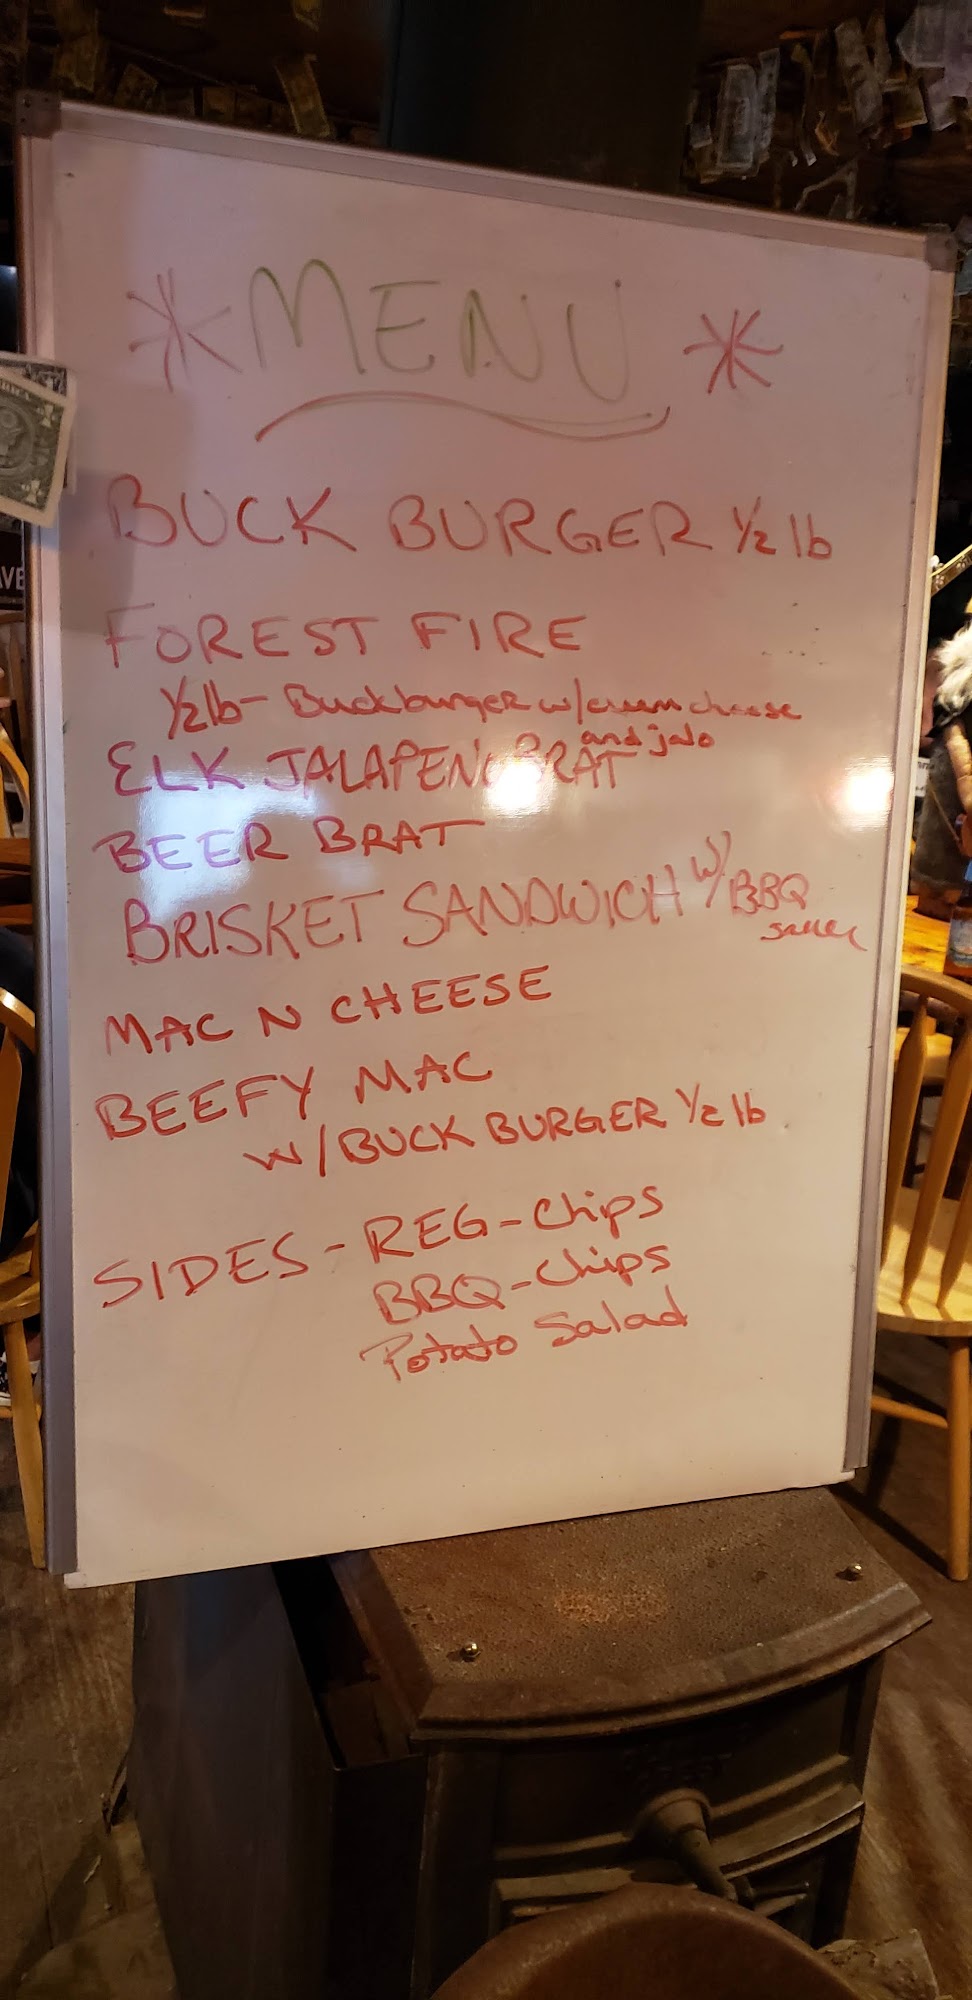 * MENU *
BUCK BURGER 1/2 lb
FOREST FIRE
1/2 lb - Buckburger w/creamcheese
and jalo
ELK JALAPENO BRAT
BEER BRAT
BRISKET SANDWICH w/ BBQ
sauce
MAC N CHEESE
BEEFY MAC
W/ BUCK BURGER 1/2 lb
SIDES - REG - Chips
BBQ - Chips
Potato Salad